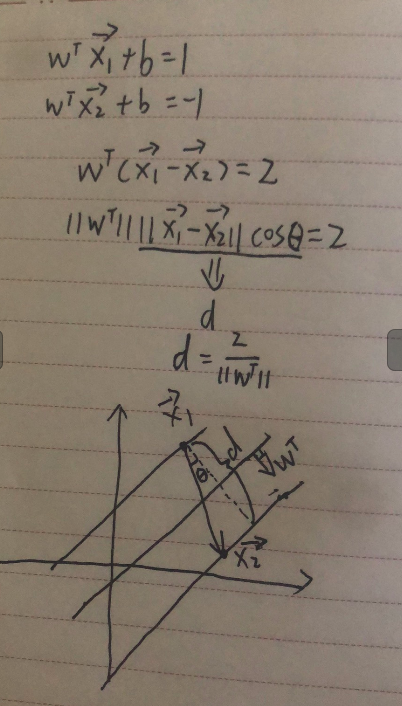 wᵀx⃗₁+b=1
wᵀx⃗₂+b=-1
wᵀ(x⃗₁-x⃗₂)=2
||wᵀ|| ||x⃗₁-x⃗₂|| cosθ=2
⇓
d
d = 2/||wᵀ||
x⃗₁
d
wᵀ
θ
x⃗₂